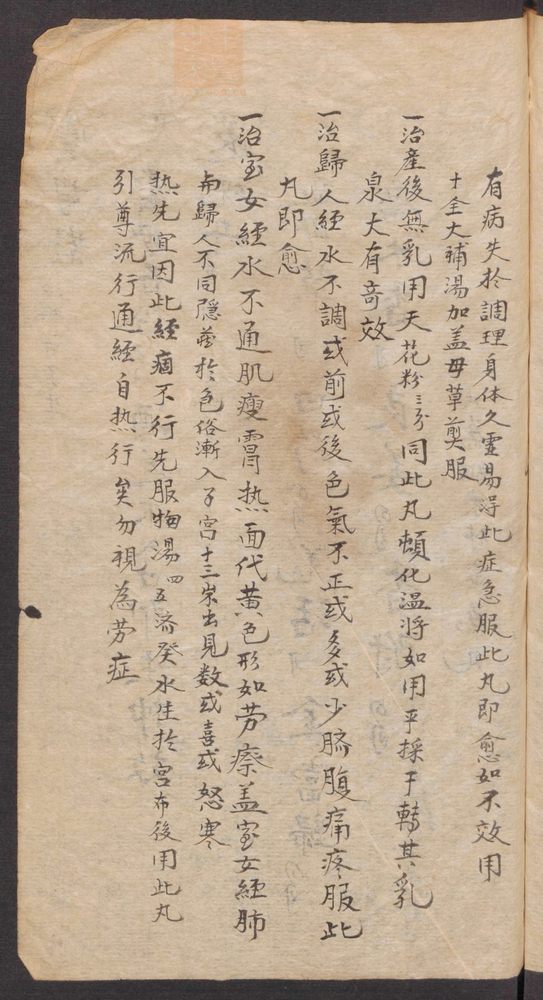 有病失於調理身体久虛易得此症急服此丸即愈如不效用
十全大補湯加益母草煎服
一治產後無乳用天花粉三分同此丸頓化溫將如用平採于轉其乳
泉大有奇效
一治歸人經水不調或前或後色氣不正或多或少臍腹痛疼服此
丸即愈
一治室女經水不通肌瘦骨热面代黄色形如劳瘵盖室女經肺
與歸人不同隱於色俗漸入子宫十三出見数或喜或怒寒
热先宜因此經痼不行先服物湯四五濟癸水生於宫布後用此丸
引導流行通經自热行矣勿視為劳症